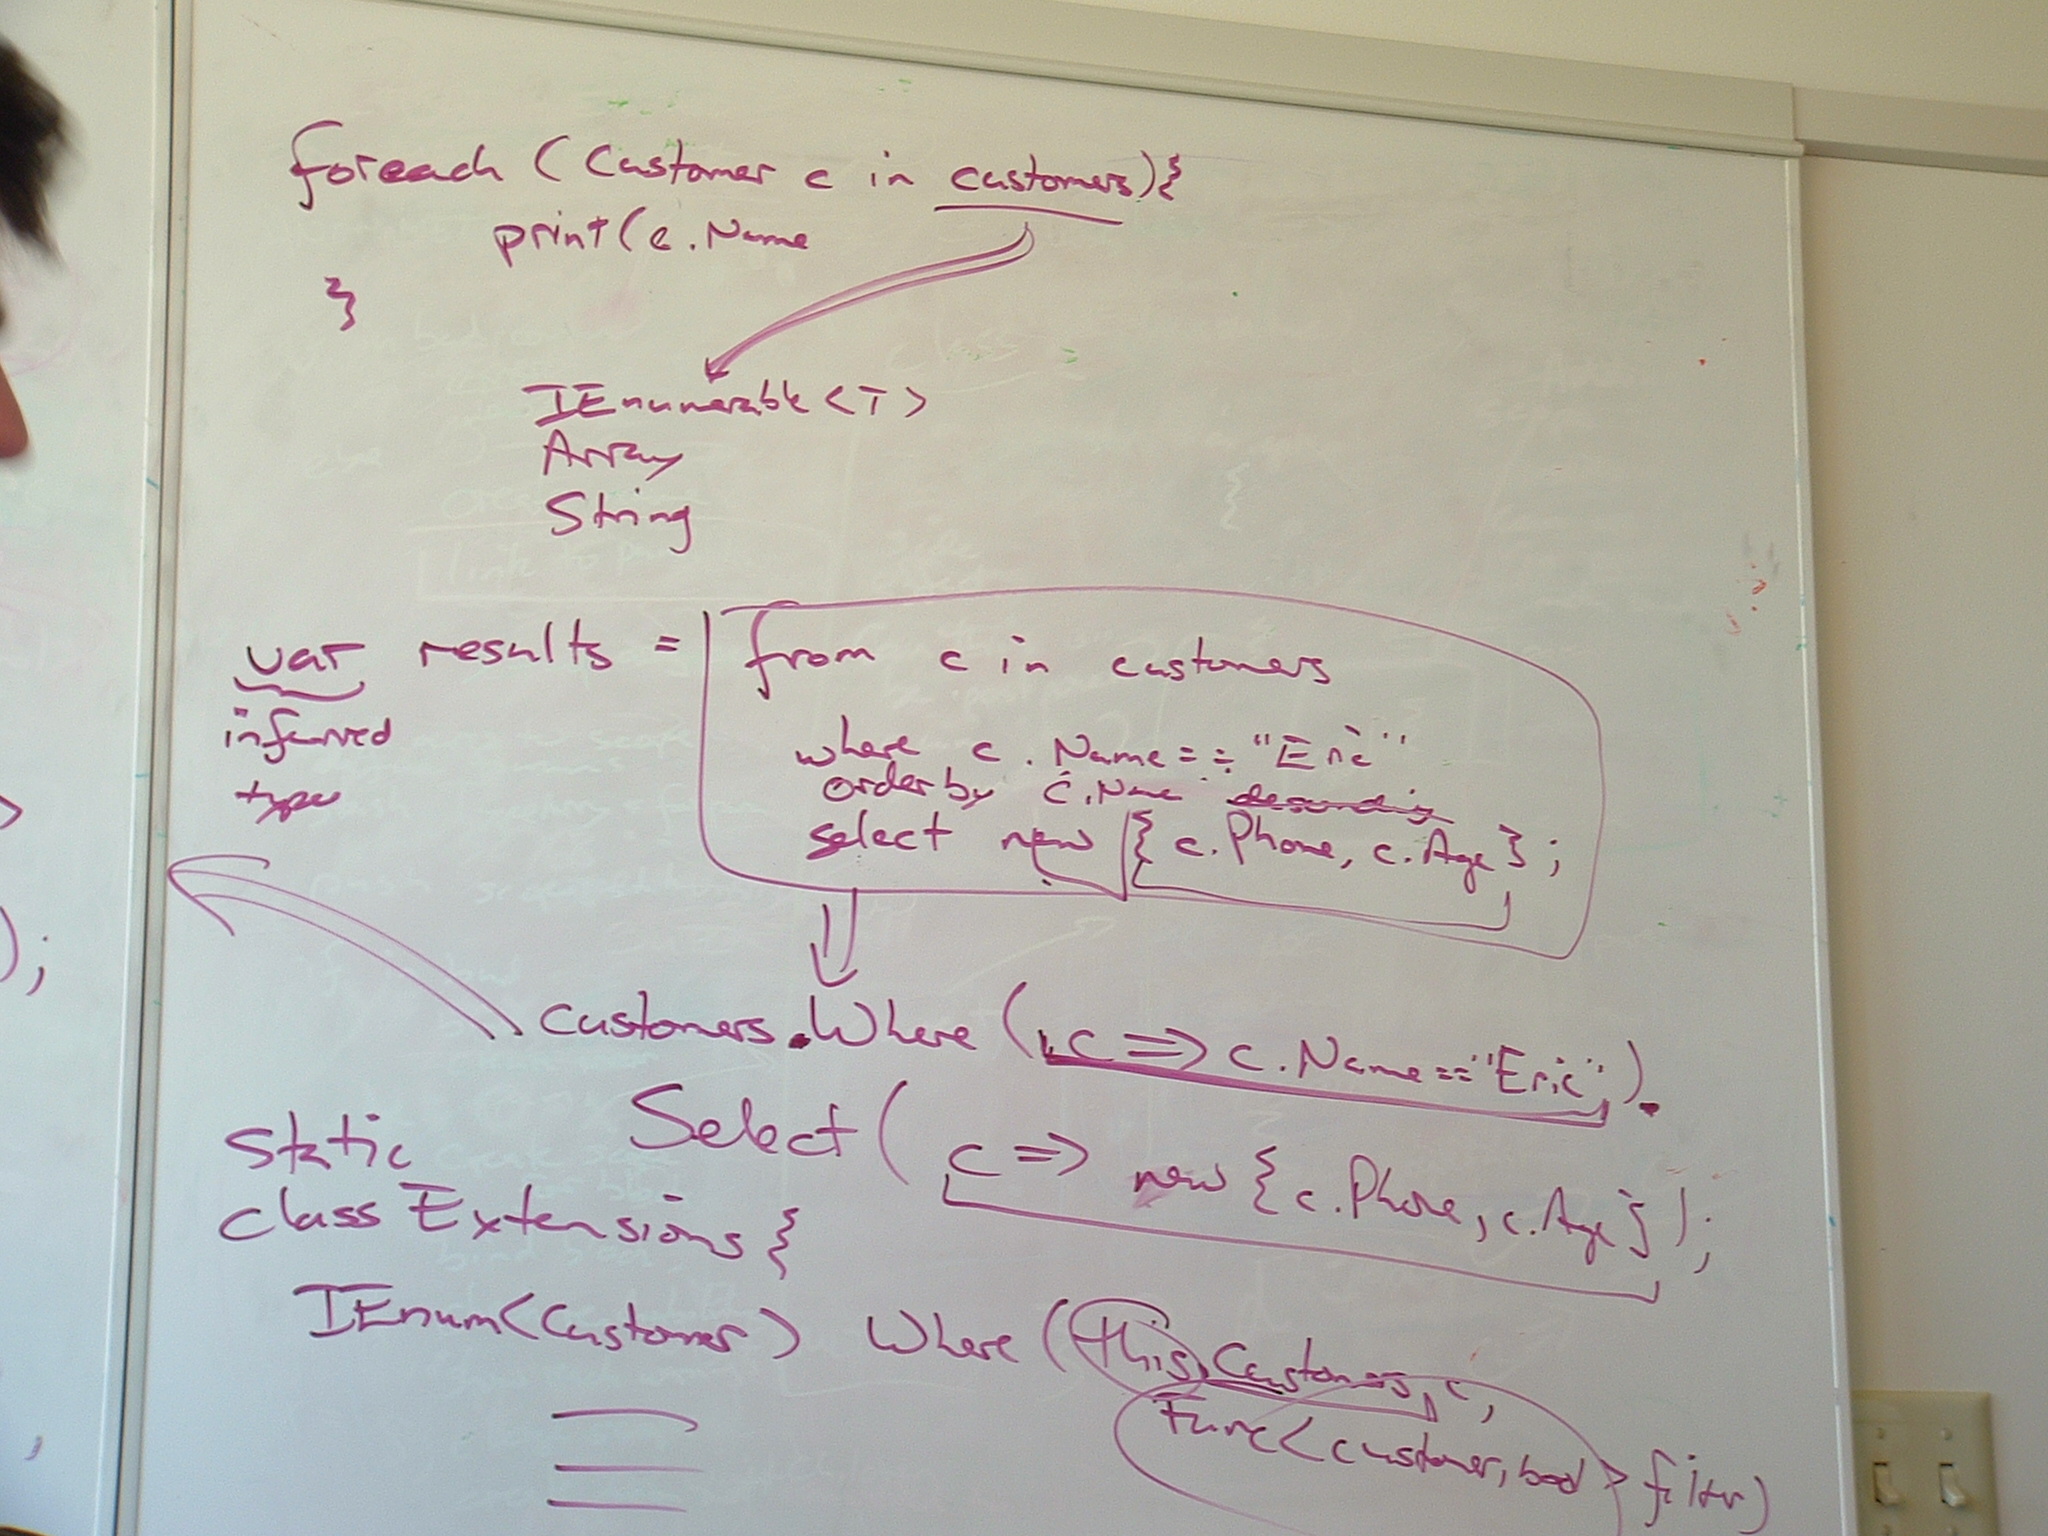 foreach (Customer c in customers){
print(c.Name
}
IEnumerable<T>
Array
String
var results = from c in customers
inferred
type
where c.Name == "Eric"
orderby c.Name descending
select new { c.Phone, c.Age };
);
customers.Where(c => c.Name=="Eric").
Select(c => new {c.Phone, c.Age});
static
class Extensions {
IEnum<Customer> Where(this Customers c,
Func<customer, bool> filter)